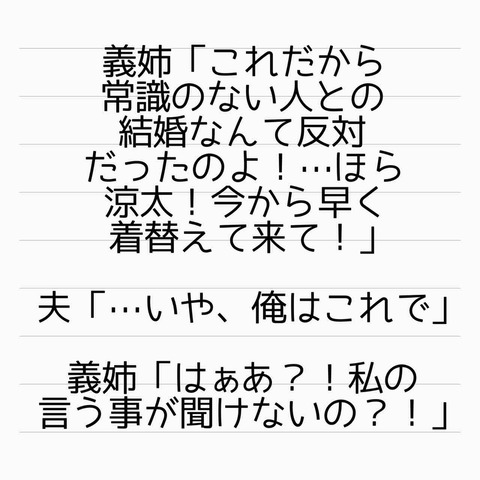 義姉「これだから
常識のない人との
結婚なんて反対
だったのよ！…ほら
涼太！今から早く
着替えて来て！」
夫「…いや、俺はこれで」
義姉「はぁあ？！私の
言う事が聞けないの？！」